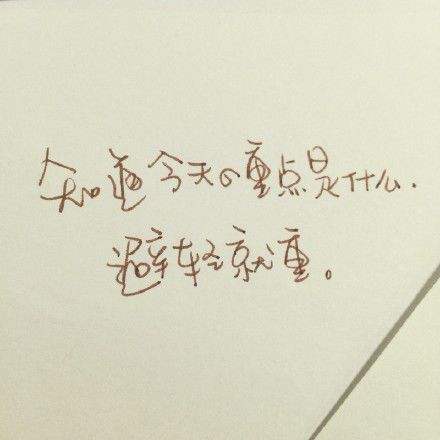 知道今天の重点是什么.
避轻就重。